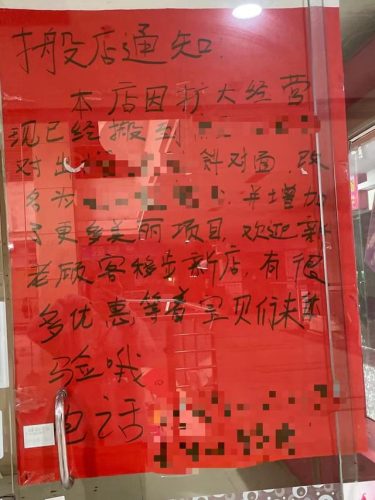 搬店通知:
本店因扩大经营
现已经搬到
对出 斜对面,改
名为 ,并增加
了更多美丽项目,欢迎新
老顾客移步新店,有很
多优惠等着宝贝们来
验哦。
电话